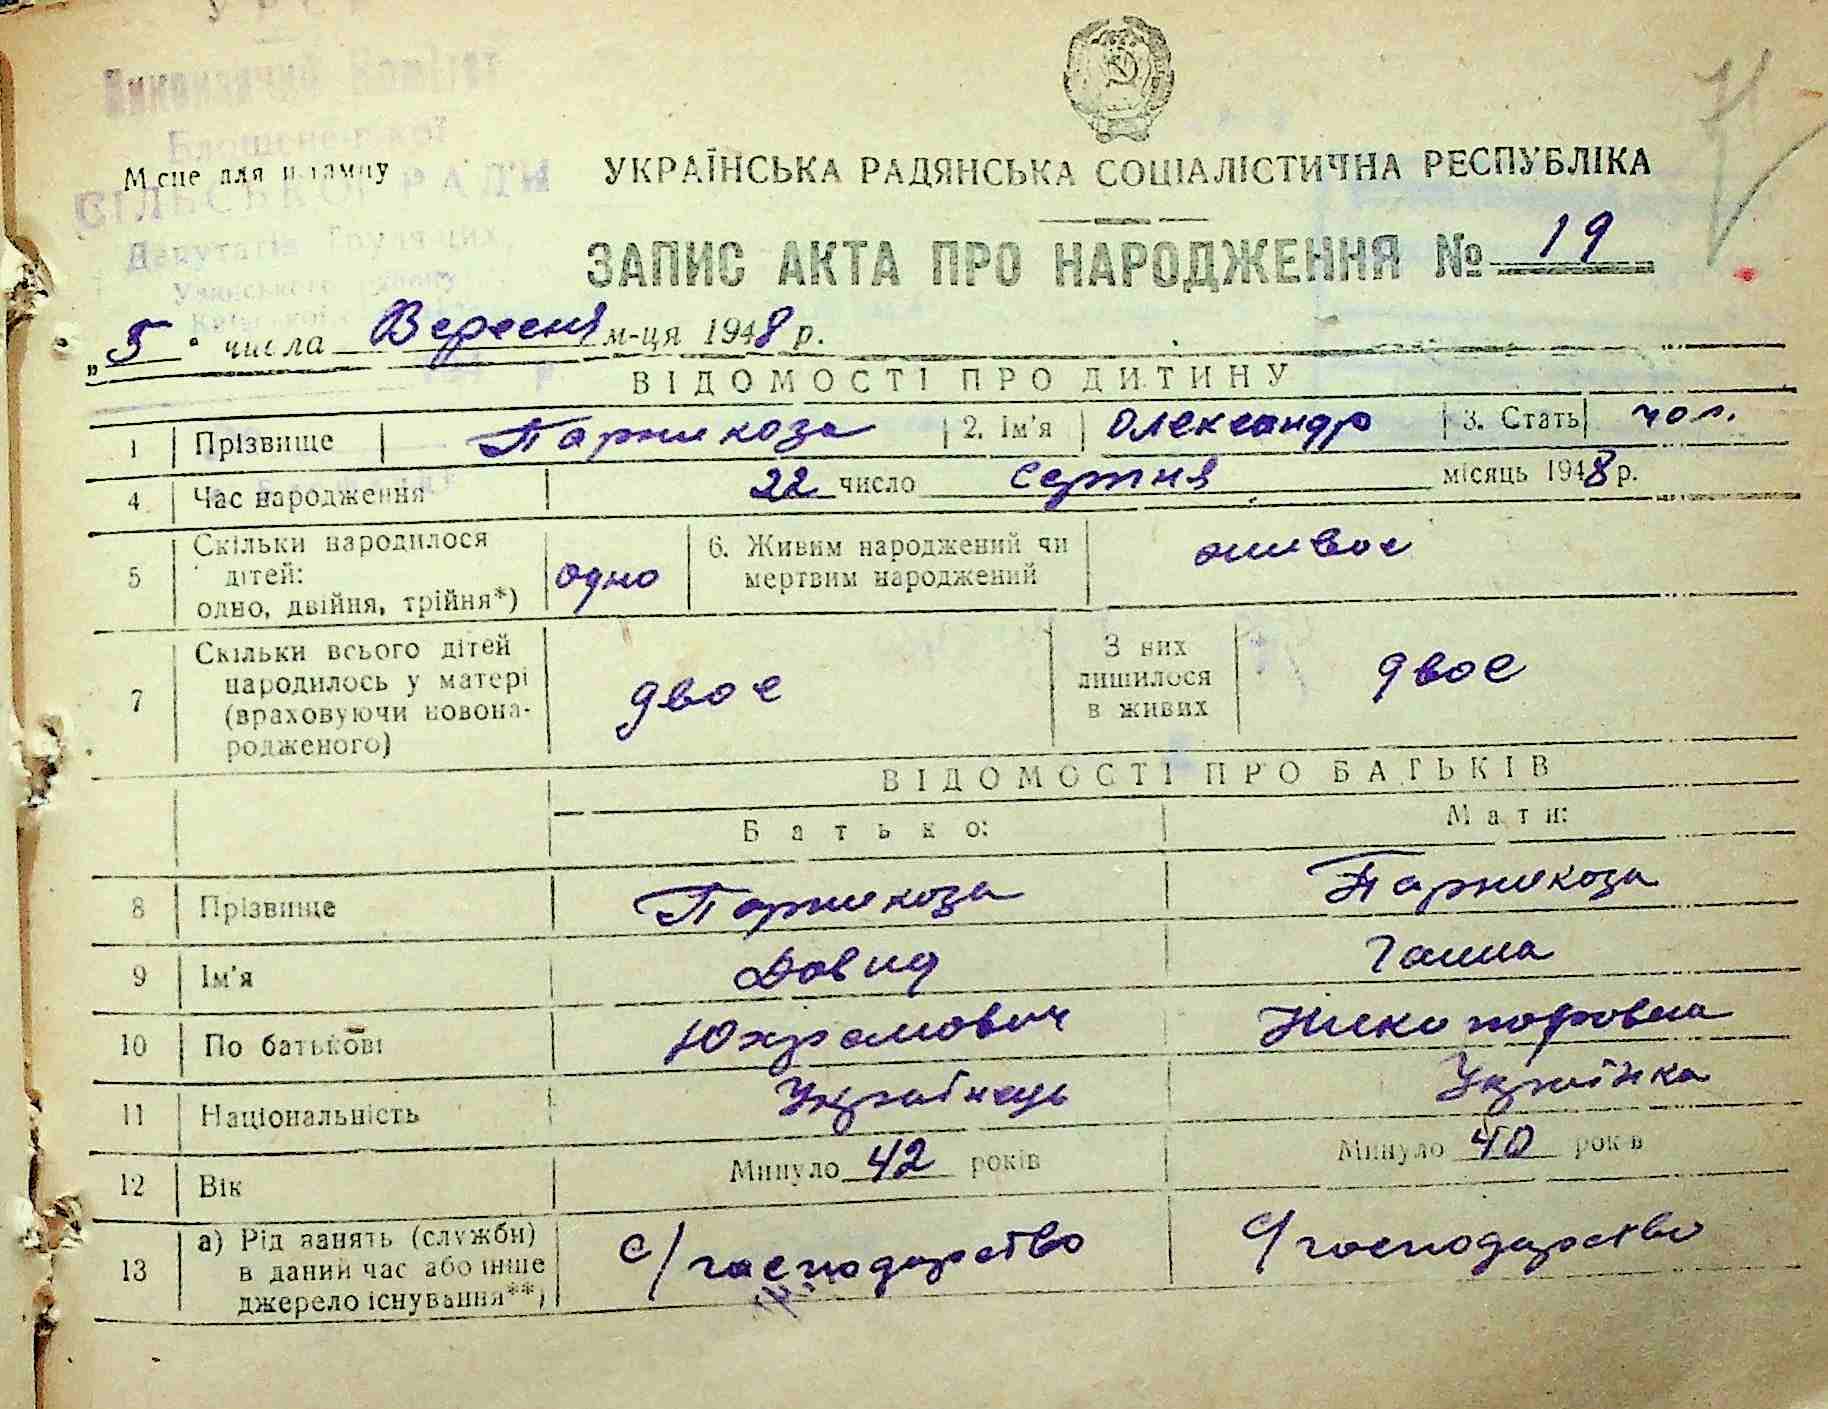 Виконавчий Комітет
СІЛЬСЬКОЇ РАДИ
Депутатів Трудящих
Місце для штампу
УКРАЇНСЬКА РАДЯНСЬКА СОЦІАЛІСТИЧНА РЕСПУБЛІКА
ЗАПИС АКТА ПРО НАРОДЖЕННЯ № 19
„5" числа Вересня м-ця 1948 р.
ВІДОМОСТІ ПРО ДИТИНУ
1 Прізвище Парникоза 2. Ім'я Олександр 3. Стать чол.
4 Час народження 22 число серпня місяць 1948 р.
5 Скільки народилося дітей: одно, двійня, трійня*) одно 6. Живим народжений чи мертвим народжений живое
7 Скільки всього дітей народилось у матері (враховуючи новонародженого) двое З них лишилося в живих двое
ВІДОМОСТІ ПРО БАТЬКІВ
Батько: Мати:
8 Прізвище Парникоза Парникоза
9 Ім'я Давид Ганна
10 По батькові Юхримович Никифоровна
11 Національність Українець Українка
12 Вік Минуло 42 років Минуло 40 років
13 а) Рід занять (служби) в даний час або інше джерело існування**) с/господарство с/господарство